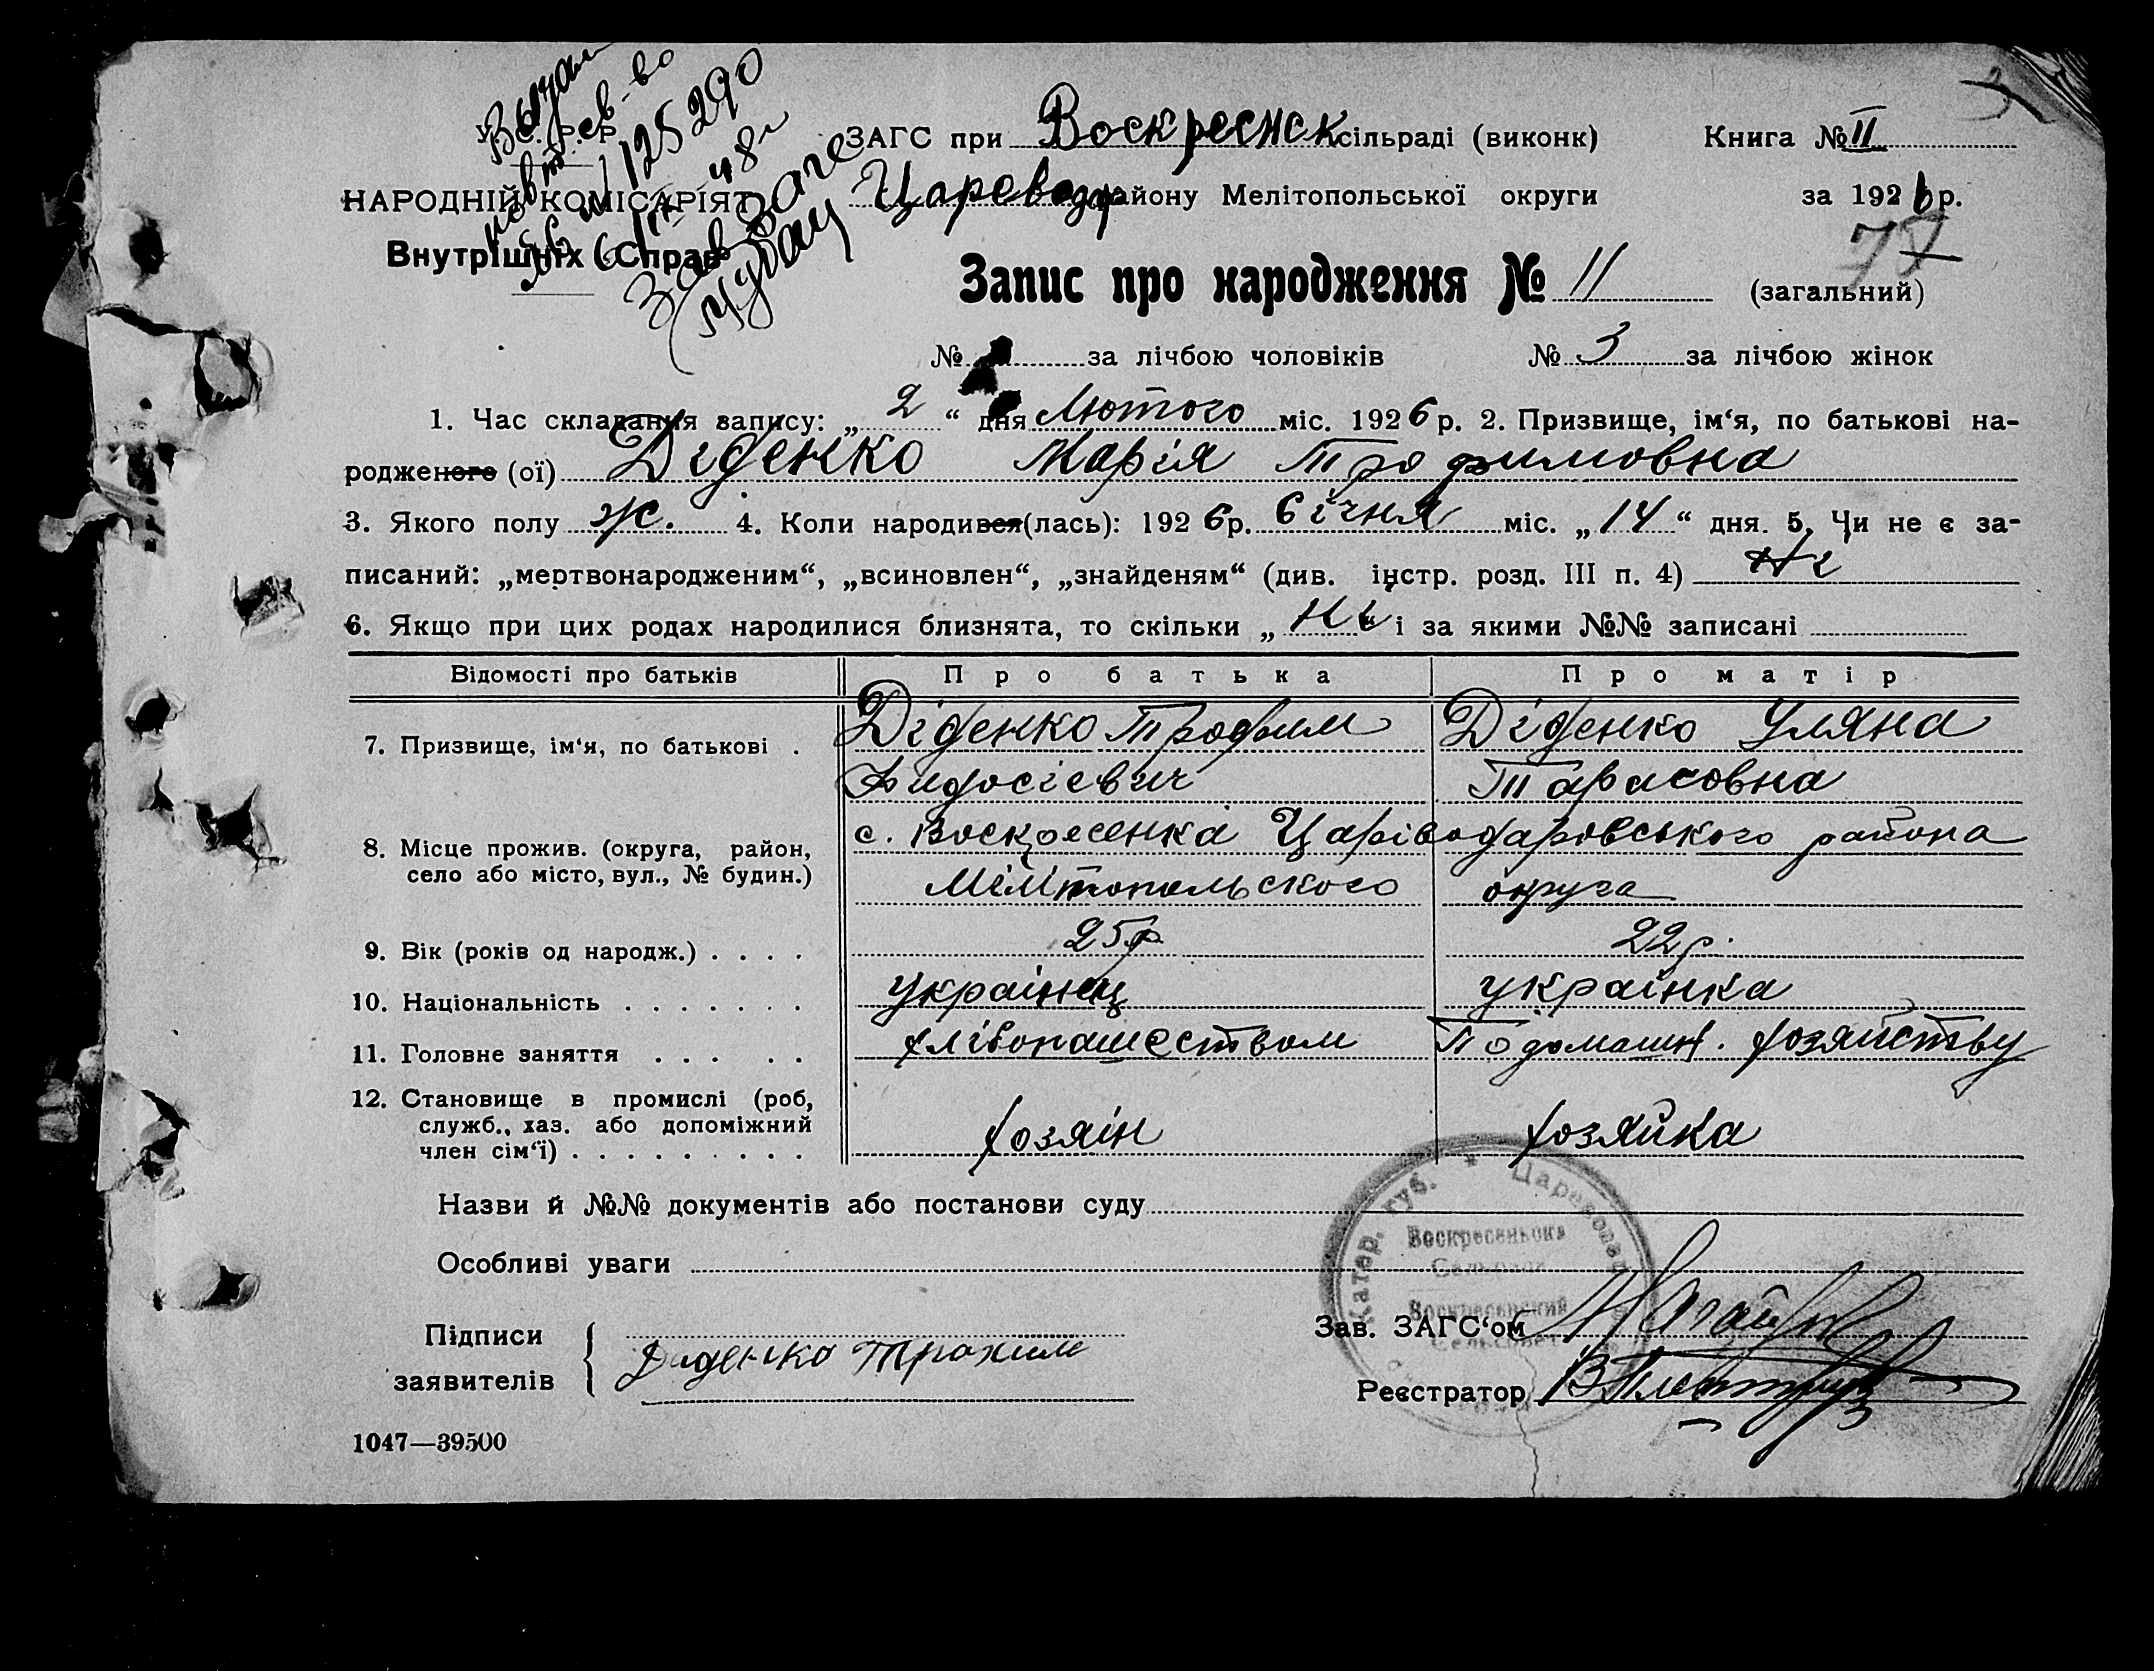 Выдан
У. С. Р. Р.
НАРОДНІЙ КОМІСАРІЯТ
Внутрішніх Справ
повт. св-во
№ 125290
48 г
Зав Загс
ЗАГС при Воскресенск сільраді (виконк) Книга № II
Царевод району Мелітопольської округи за 1926 р.
77
Запис про народження № 11 (загальний)
№ за лічбою чоловіків № 3 за лічбою жінок
1. Час складання запису: „ 2 “ дня Лютого міс. 1926 р. 2. Призвище, ім‘я, по батькові на-
родженого (ої) Діденко Марія Трофимовна
3. Якого полу ж. 4. Коли народився(лась): 1926 р. січня міс. „ 14 “ дня. 5. Чи не є за-
писаний: „мертвонародженим“, „всиновлен“, „знайденям“ (див. інстр. розд. III п. 4) Ні
6. Якщо при цих родах народилися близнята, то скільки „ Ні “ і за якими №№ записані
Відомості про батьків Про батька Про матір
7. Призвище, ім‘я, по батькові . Діденко Трофим Діденко Уляна
Фидосіевич Тарасовна
8. Місце прожив. (округа, район, с. Воскресенка Царіводаровського района
село або місто, вул., № будин.) Мелітопольского округа
9. Вік (років од народж.) . . . . 25 р 22 р.
10. Національність . . . . . . . українец українка
11. Головне заняття . . . . . хлібопашеством По домашн. хозяйству
12. Становище в промислі (роб,
служб., хаз. або допоміжний хозяін хозяйка
член сім‘ї) . . . . . . . . .
Назви й №№ документів або постанови суду
Особливі уваги
Катер. губ. * Царевовод
Воскресеньска
Сельрада
Воскресенский
Сельсовет
Підписи
заявителів Діденко Трохим
Зав. ЗАГС‘ом
Реєстратор
1047—39500